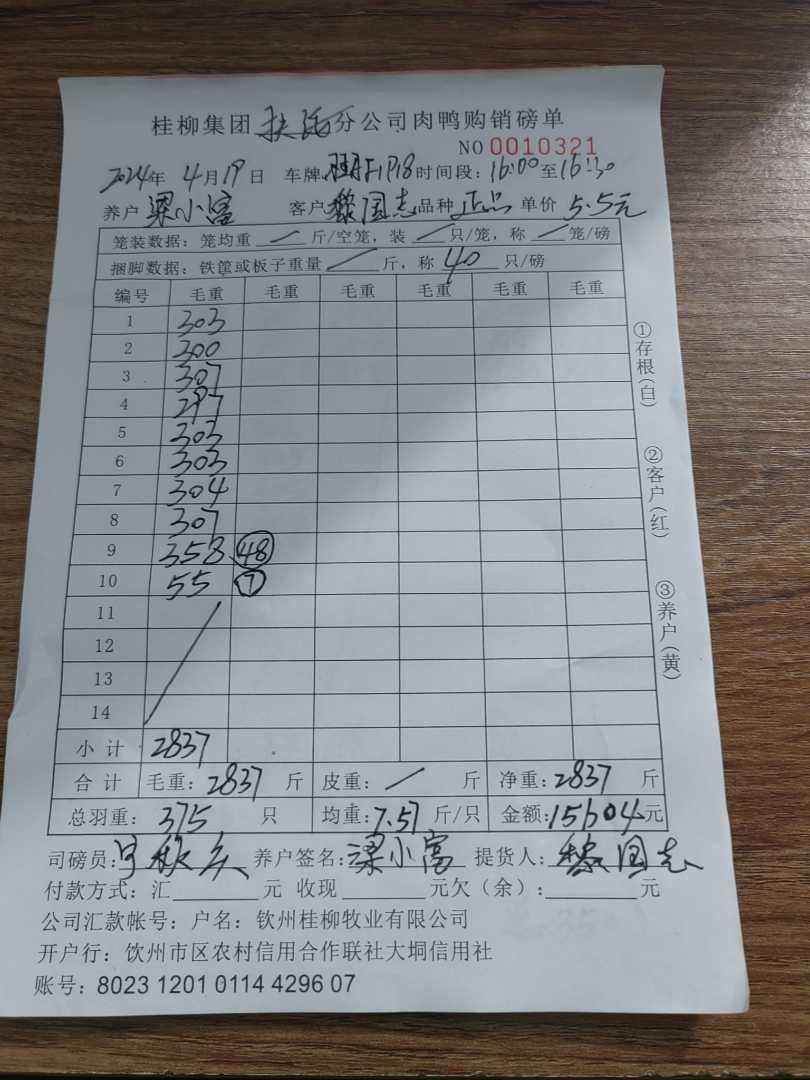 桂柳集团 扶绥 分公司肉鸭购销磅单
NO 0010321
2024年 4月19日 车牌 时间段：16:00至16:30
养户 梁小富 客户 黎国志 品种 正品 单价 5.5元
笼装数据：笼均重 / 斤/空笼，装 / 只/笼，称 / 笼/磅
捆脚数据：铁筐或板子重量 / 斤，称 40 只/磅
编号 毛重 毛重 毛重 毛重 毛重 毛重
1 303
2 300
3 307
4 297
5 303
6 303
7 304
8 307
9 358 48
10 55 7
11
12
13
14
小计 2837
合计 毛重：2837 斤 皮重：/ 斤 净重：2837 斤
总羽重：375 只 均重：7.57 斤/只 金额：15604元
司磅员： 养户签名：梁小富 提货人：黎国志
付款方式：汇 元 收现 元欠（余）： 元
公司汇款帐号：户名：钦州桂柳牧业有限公司
开户行：钦州市区农村信用合作联社大垌信用社
账号：8023 1201 0114 4296 07
①存根（白）
②客户（红）
③养户（黄）